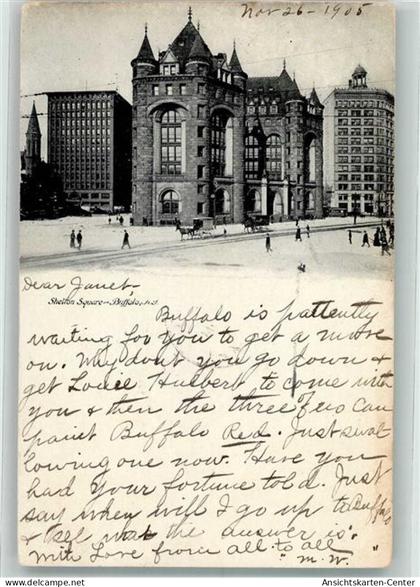 Nov 26 - 1905
Dear Janet,
Shelton Square - Buffalo, N.Y.
Buffalo is pattently
waiting for you to get a move
on. Why dont you go down &
get Louie Hulbert, to come with
you & then the three of us can
paint Buffalo Red. Just swal
lowing one now. Have you
had your fortune told. Just
say when will I go up to Buffalo
& see what the answer is.
With Love from all to all
" M. W. "
© Ansichtskarten-Center